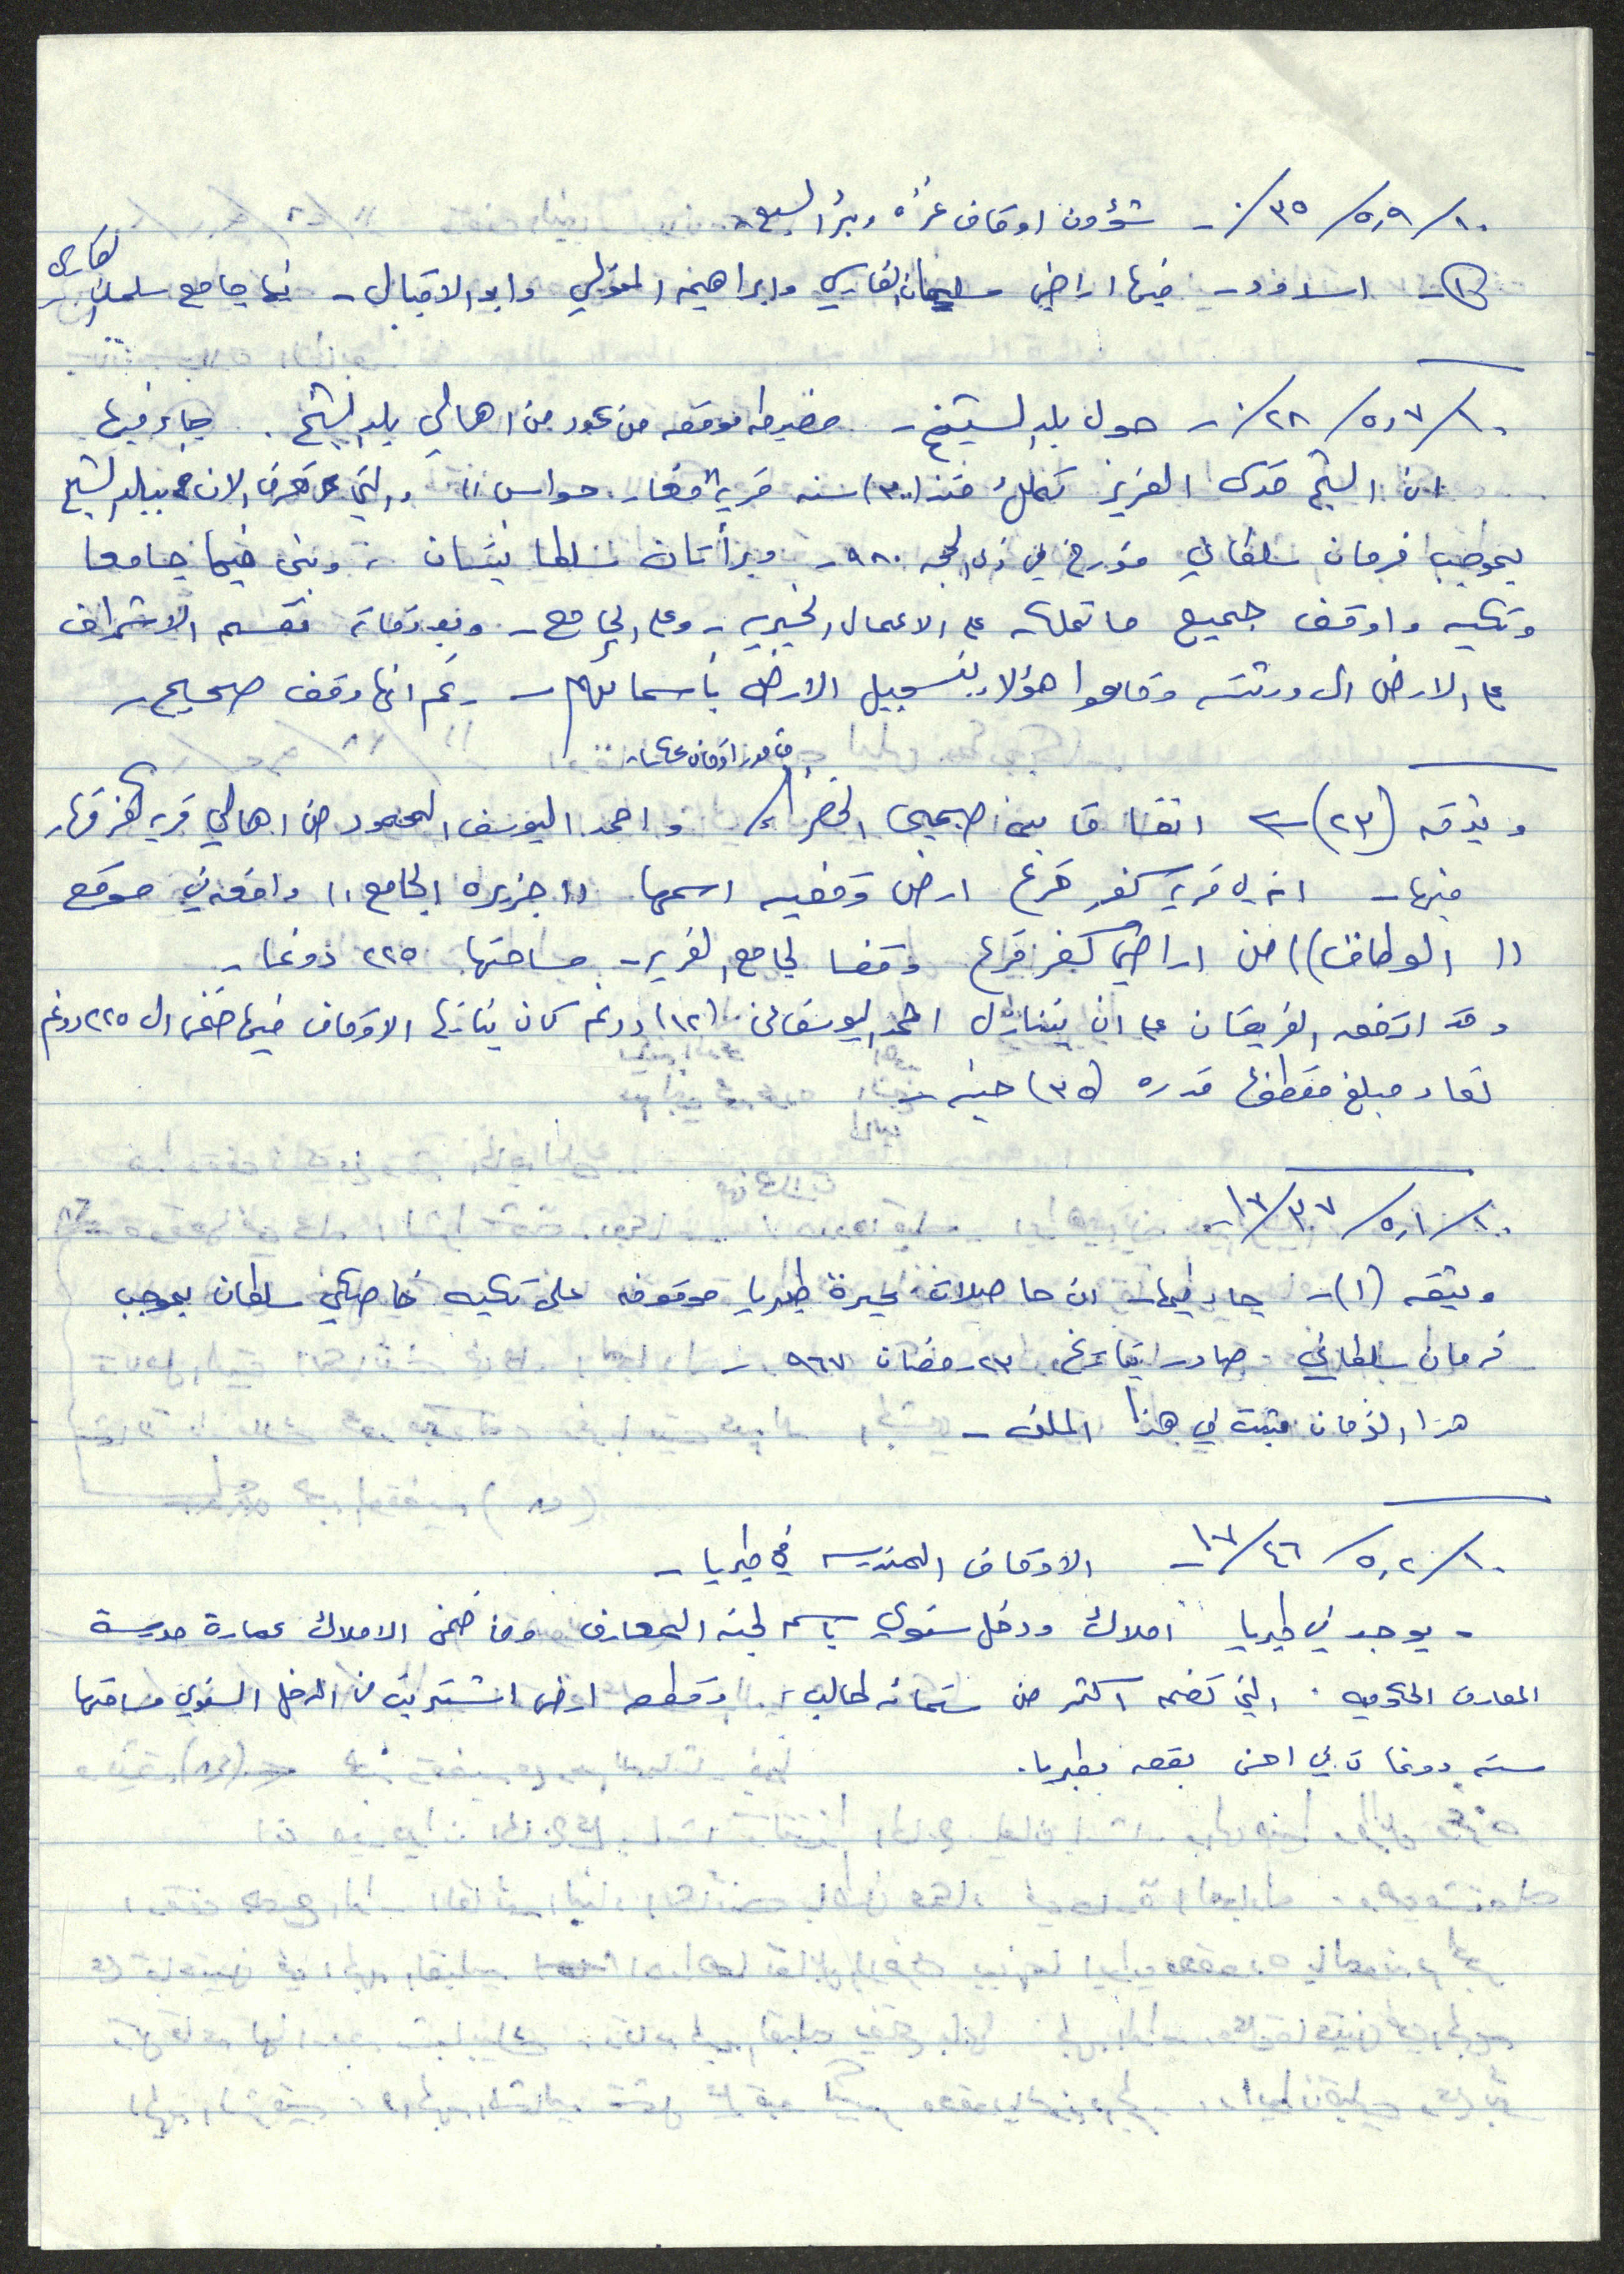 ١٠/ ٥,٩/ ٣٥/٠ - شؤون اوقاف غزه وبئر السبع -
اسدود - فيها اراضي سليمان الفارسي وابراهيم المتولي وابو الاقبال - فيها جامع سلمان الفارسي
١٠/ ٥,٧/ ٢٨/٠ - حول بلد الشيخ - مضبطه موقعه من عدد من اهالي بلد الشيخ . جاء فيها
ان الشيخ قدس العزيز تملك منذ (٣٠٠) سنه قريه "مغار حواس" والتي تعرف الان ببلد الشيخ
بموجب فرمان سلطاني مؤرخ في ذي الحجه ٩٨٠ - وبرأتان سلطانيتان ، وبنى فيها جامعا
وتكيه واوقف جميع ما تملك على الاعمال الخيريه - وعلى الجامع - وبعد وفاته تقسم الاشراف
على الارض الى ورثته وقاموا هؤلاء بتسجيل الارض بأسمائهم - رغم انها وقف صحيح -
مأمور اوقاف عكا -
وثيقه (٢٣) - اتفاقا بين صبحي الخضرا / و احمد اليوسف المحمود من اهالي قريه كفر قرع
فيها - انه في قريه كفر قرع ارض وقفيه اسمها "جزيره الجامع" واقعه في موقع
"الوطاف" من اراضي كفر قرع وقفا لجامع القريه - مساحتها ٢٢٥ دونما -
وقد اتفقه الفريقان على ان يتنازل احمد اليوسف عن (١٢) دونم كان ينازع الاوقاف فيها ضمن ال ٢٢٥ دونم
لقاء مبلغ مقطوع قدره (٣٥) جنيه -
١٠/ ٥,١/ ٣٧/ ١٣ -
وثيقه (١) - جاء فيها - ان حاصلات بحيرة طبريا موقوفه على تكيه خاصكي سلطان بموجب
فرمان سلطاني صادر بتاريخ ٢٣ رمضان ٩٦٧ -
هذا الفرمان مثبت في هذا الملف -
١٠/ ٥,٢/ ٤٦/ ١٧ - الاوقاف المندرسه في طبريا -
- يوجد في طبريا املاك ودخل سنوي باسم لجنه المعارف ومن ضمن الاملاك عمارة مدرسة
المعارف الحكوميه . التي تضم اكثر من ستمائه طالب ، وقطعه ارض اشتريت من الدخل السنوي مساحتها
سته دونمات في احسن بقعه بطبريا .